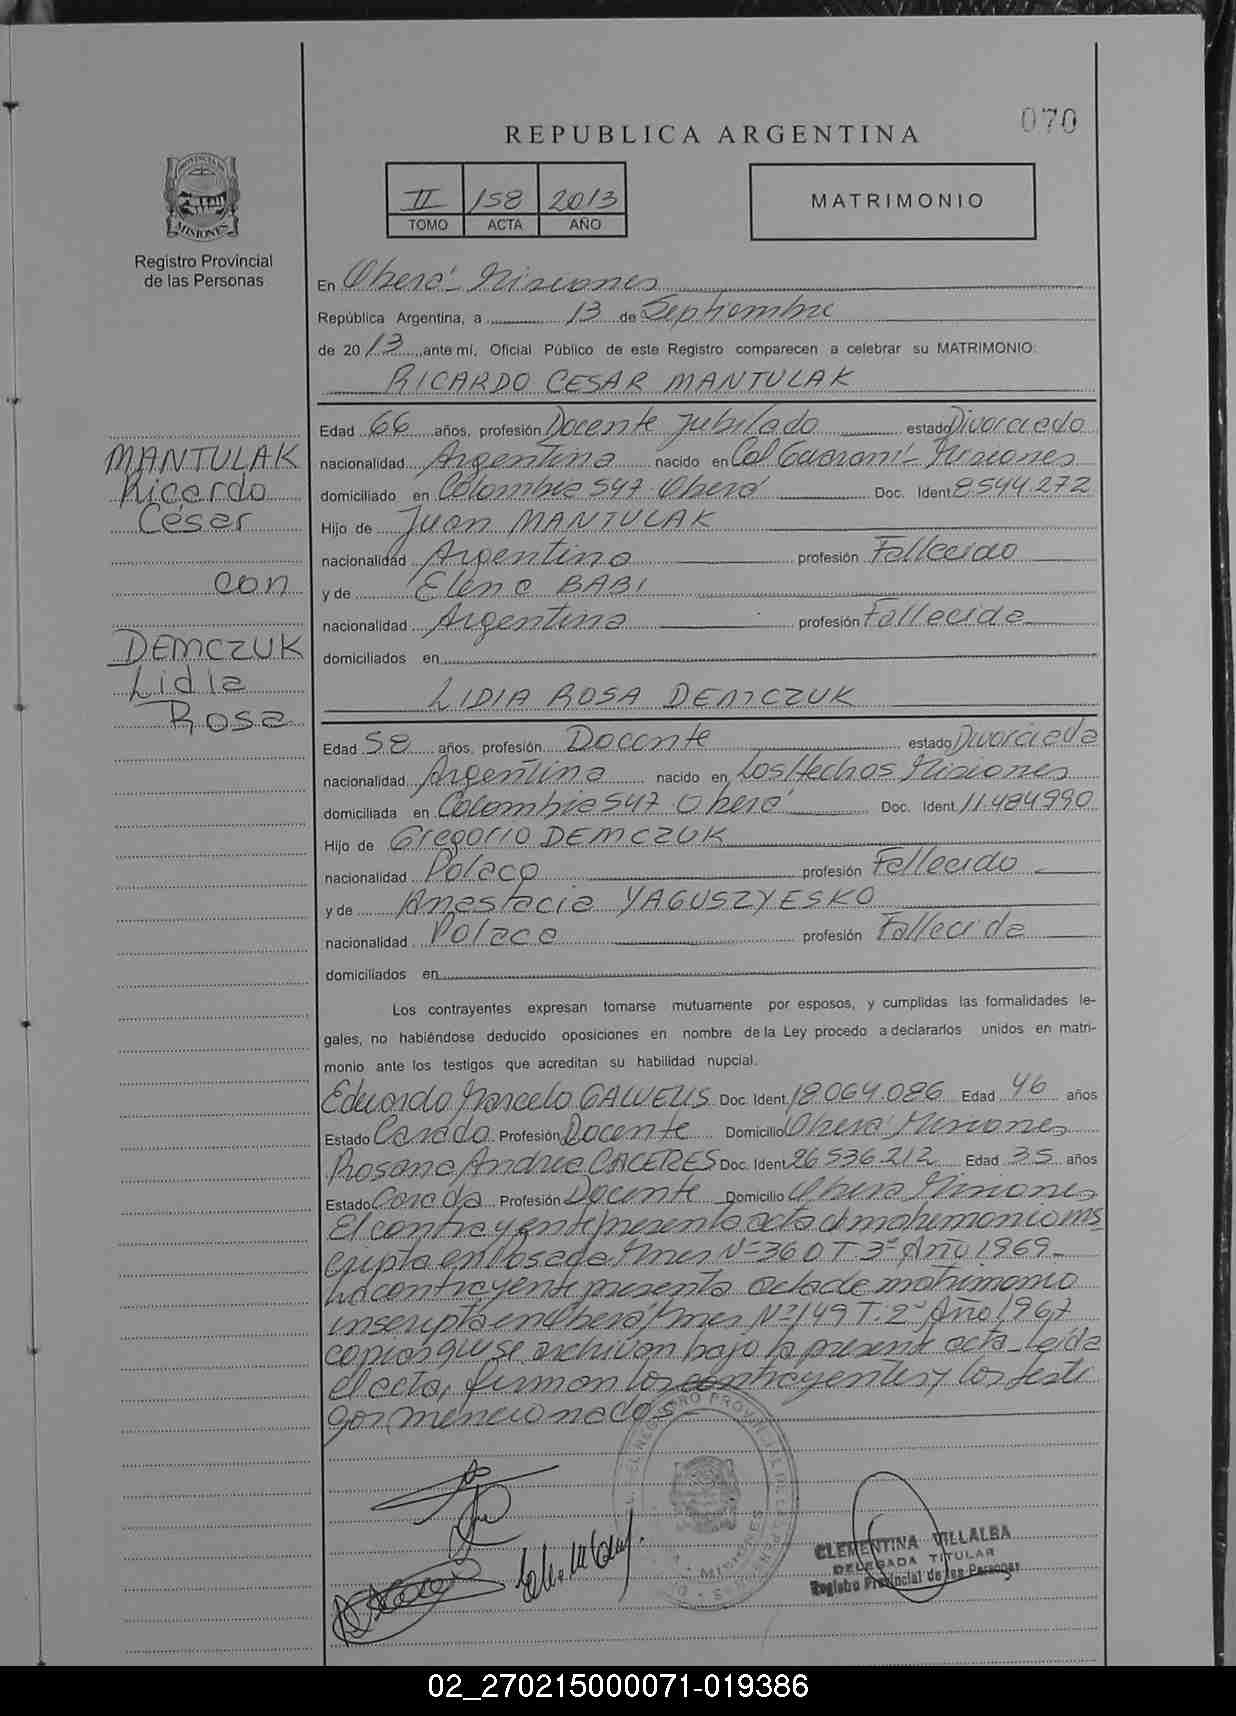 070
REPUBLICA ARGENTINA
II 158 2013
TOMO ACTA AÑO
MATRIMONIO
PROVINCIA DE
MISIONES
Registro Provincial
de las Personas
En Oberá - Misiones
República Argentina, a 13 de Septiembre
de 2013, ante mí, Oficial Público de este Registro comparecen a celebrar su MATRIMONIO:
RICARDO CESAR MANTULAK
Edad 66 años, profesión Docente Jubilado estado Divorciado
nacionalidad Argentina nacido en Col Guaraní - Misiones
domiciliado en Colombia 547 - Oberá Doc. Ident 8.544.272
Hijo de Juan MANTULAK
nacionalidad Argentino profesión Fallecido
y de Elena BABI
nacionalidad Argentina profesión Fallecida
domiciliados en
MANTULAK
Ricardo
César
con
DEMCZUK
Lidia
Rosa
LIDIA ROSA DEMCZUK
Edad 58 años, profesión Docente estado Divorciada
nacionalidad Argentina nacido en Los Hechos Misiones
domiciliada en Colombia 547 Oberá Doc. Ident 11.484.990
Hijo de Gregorio DEMCZUK
nacionalidad Polaco profesión Fallecido
y de Anastacia YAGUSZYESKO
nacionalidad Polaca profesión Fallecida
domiciliados en
Los contrayentes expresan tomarse mutuamente por esposos, y cumplidas las formalidades le-
gales, no habiéndose deducido oposiciones en nombre de la Ley procedo a declararlos unidos en matri-
monio ante los testigos que acreditan su habilidad nupcial.
Eduardo Marcelo GALVEUS Doc. Ident. 18.064.086 Edad 46 años
Estado Casado Profesión Docente Domicilio Oberá Misiones
Rosana Andrea CACERES Doc. Ident. 26.536.212 Edad 35 años
Estado Casada Profesión Docente Domicilio Oberá Misiones
El contrayente presenta acta d matrimonio ins
cripta en Posadas Mnes Nº 360 T 3º Año 1969 -
La contrayente presenta acta de matrimonio
inscripta en Oberá Mnes Nº 149 T. 2º Año 1967
copias que se archivan bajo la presente acta - Leída
el acta, firman los contrayentes y los testi
gos mencionados -
REGISTRO PROVINCIAL DE LAS PERSONAS
MISIONES
CLEMENTINA VILLALBA
DELEGADA TITULAR
Registro Provincial de las Personas
02_270215000071-019386